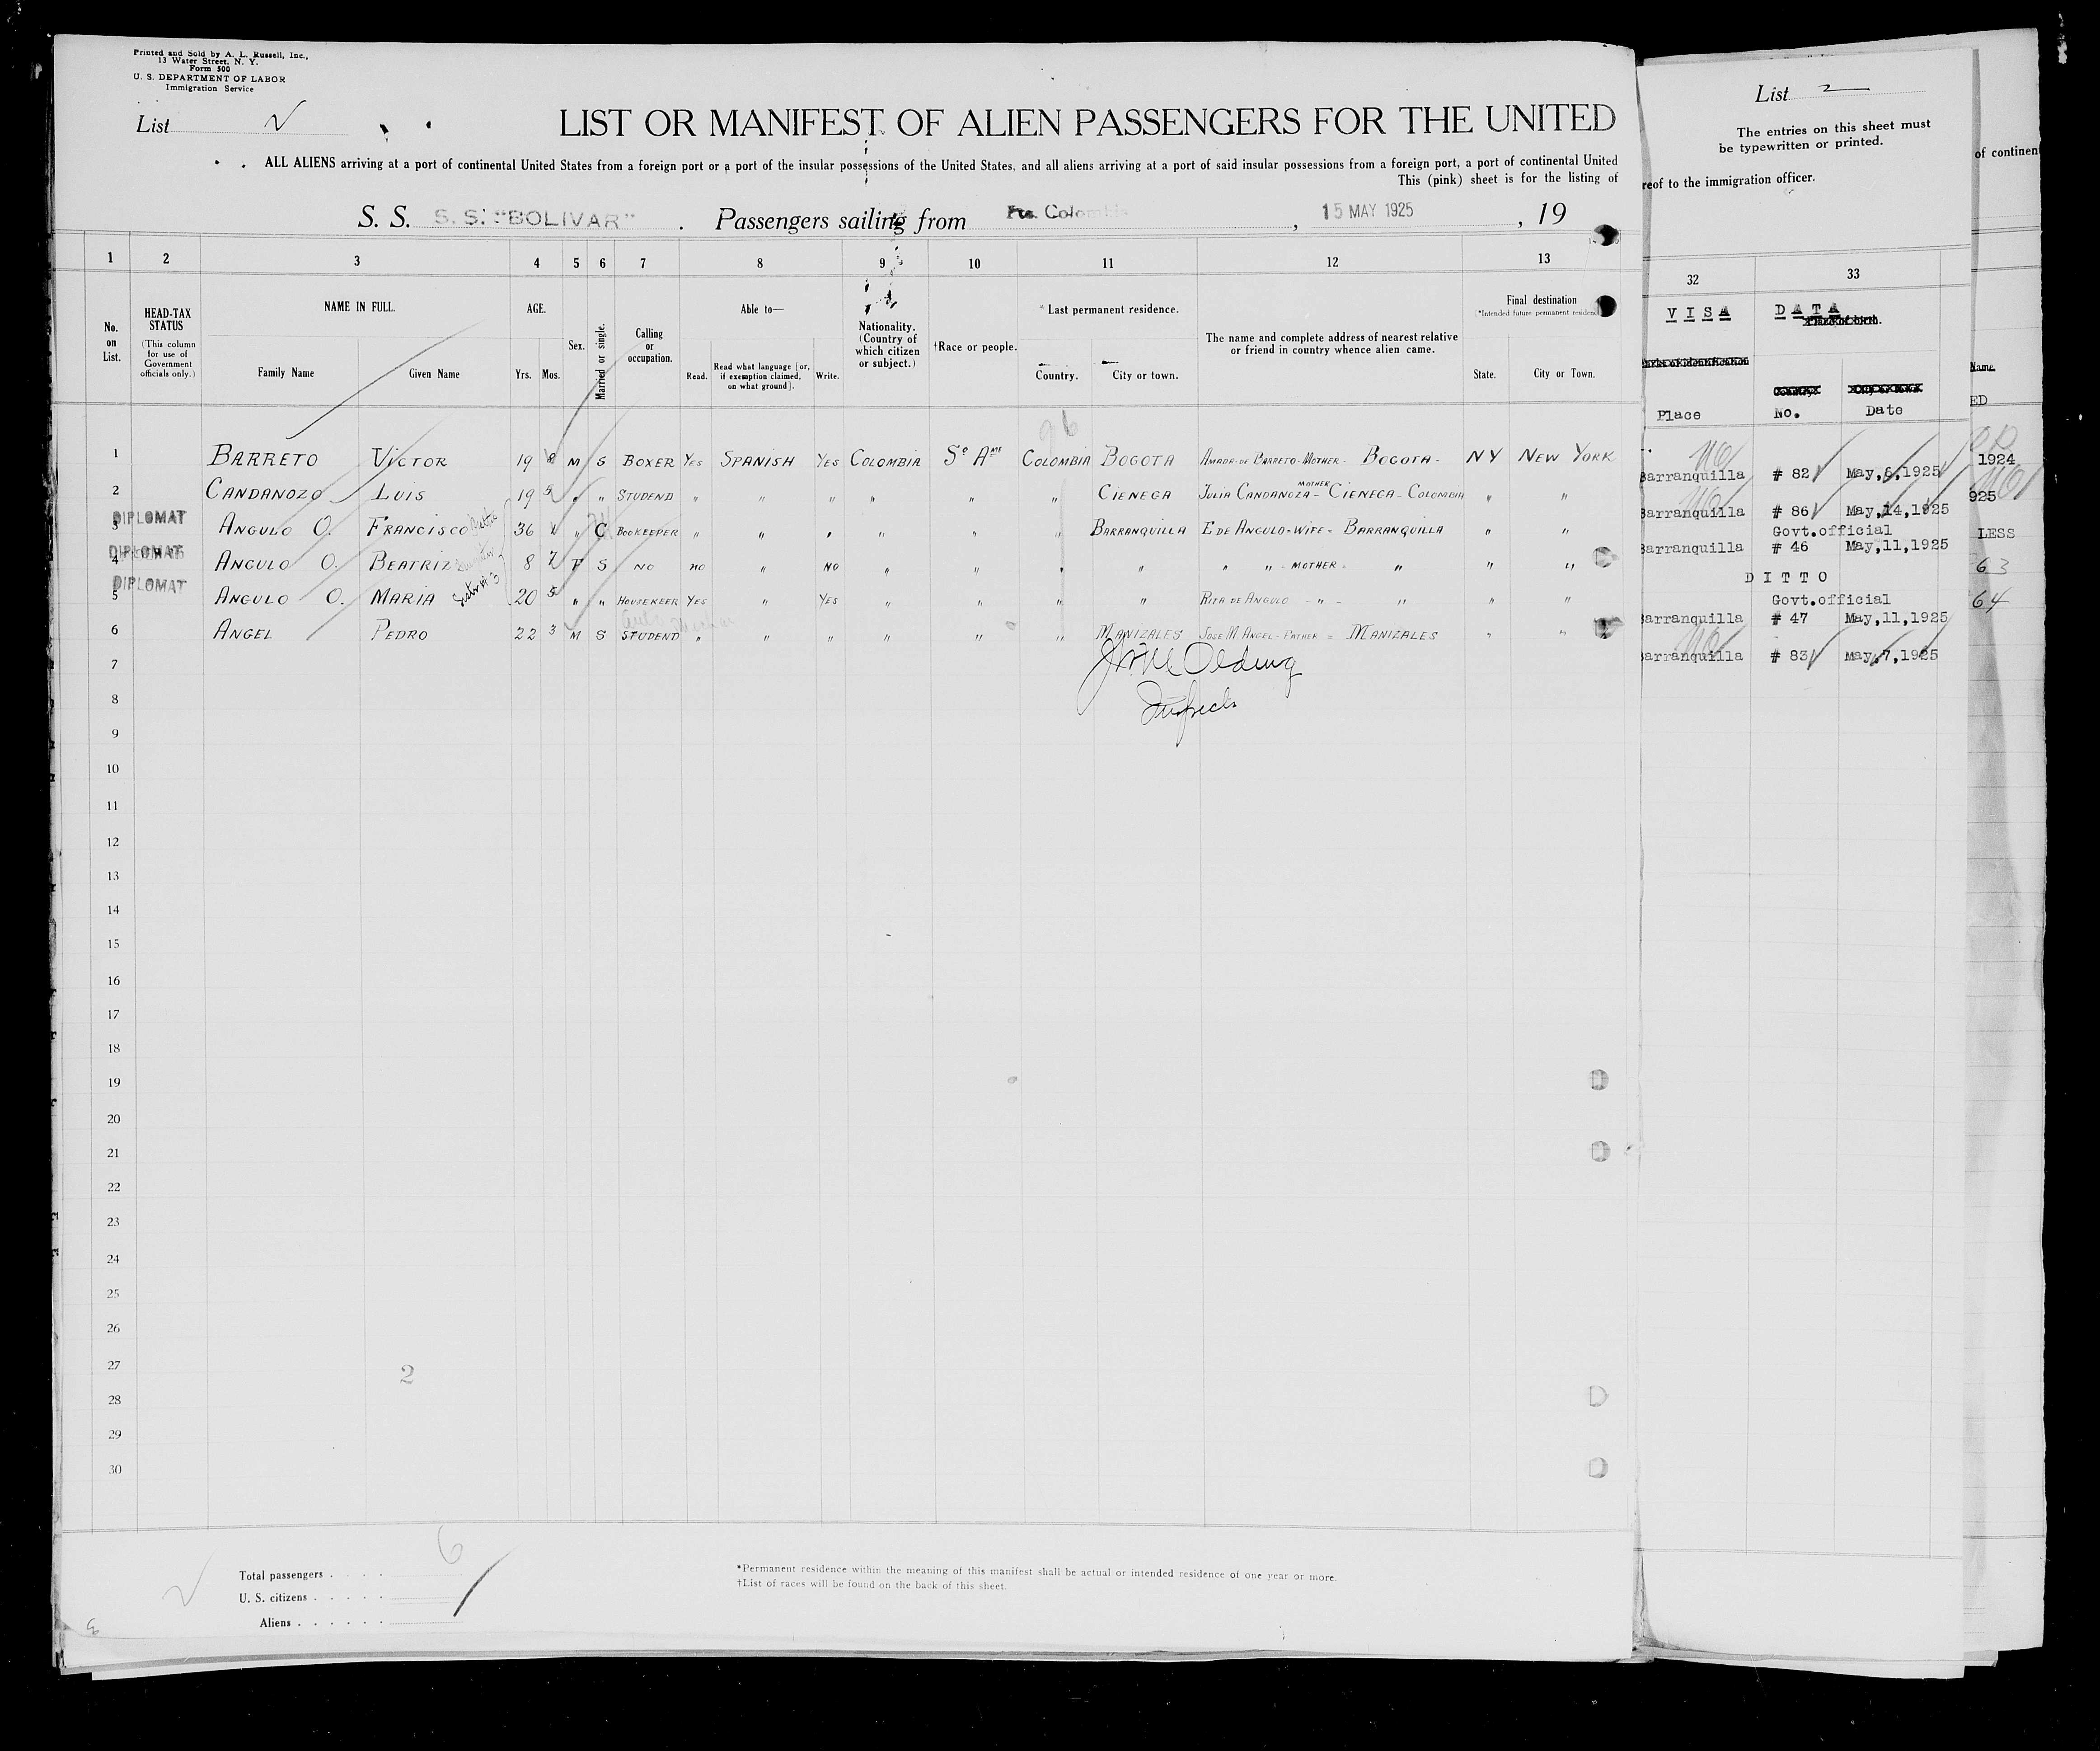 Printed and Sold by A. L. Russell, Inc.,
13 Water Street, N. Y.
Form 500
U. S. DEPARTMENT OF LABOR
Immigration Service
List
LIST OR MANIFEST OF ALIEN PASSENGERS FOR THE UNITED
ALL ALIENS arriving at a port of continental United States from a foreign port or a port of the insular possessions of the United States, and all aliens arriving at a port of said insular possessions from a foreign port, a port of continental United
This (pink) sheet is for the listing of
S. S. S. S. "BOLIVAR" . Passengers sailing from Pto. Colombia , 15 MAY 1925 , 19
List 2
The entries on this sheet must
be typewritten or printed.
reof to the immigration officer.
of continen
1 2 3 4 5 6 7 8 9 10 11 12 13 32 33
No. on List.
HEAD-TAX STATUS
(This column for use of Government officials only.)
NAME IN FULL.
Family Name Given Name
AGE.
Yrs. Mos.
Sex.
Married or single.
Calling or occupation.
Able to—
Read. Read what language [or, if exemption claimed, on what ground]. Write.
Nationality. (Country of which citizen or subject.)
†Race or people.
*Last permanent residence.
Country. City or town.
The name and complete address of nearest relative or friend in country whence alien came.
Final destination
(*Intended future permanent residence)
State. City or Town.
VISA DATA
Place No. Date
Name.
ED
1 BARRETO VICTOR 19 8 M S BOXER YES SPANISH YES COLOMBIA So Am COLOMBIA BOGOTA AMADA DE BARRETO-MOTHER- BOGOTA- NY NEW YORK
Barranquilla # 82 May,6,1925
1924
2 CANDANOZO LUIS 19 5 " " STUDEND " " " " " " CIENEGA JULIA CANDANOZA- MOTHER CIENEGA-COLOMBIA " "
Barranquilla # 86 May,14,1925
925
3 DIPLOMAT ANGULO O. FRANCISCO 36 " C BOOKEEPER " " " " " " BARRANQUILLA E DE ANGULO-WIFE- BARRANQUILLA " "
Govt.official
Barranquilla # 46 May,11,1925
LESS
4 DIPLOMAT ANGULO O. BEATRIZ 8 7 F S NO NO " NO " " " " " " MOTHER " " "
DITTO
63
5 DIPLOMAT ANGULO O. MARIA Sister #3 20 5 " " HOUSEKEER YES " YES " " " " RITA DE ANGULO - " - " " "
Govt.official
Barranquilla # 47 May,11,1925
64
6 ANGEL PEDRO 22 3 M S STUDEND " " " " " " MANIZALES JOSE M ANGEL-FATHER = MANIZALES " "
Barranquilla # 83 May,7,1925
7
8
9
10
11
12
13
14
15
16
17
18
19
20
21
22
23
24
25
26
27
2
28
29
30
Total passengers 6
U. S. citizens
Aliens
*Permanent residence within the meaning of this manifest shall be actual or intended residence of one year or more.
†List of races will be found on the back of this sheet.